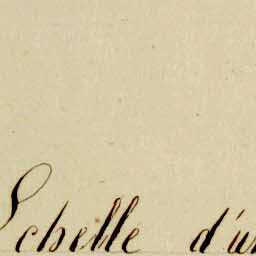 Echelle d'un